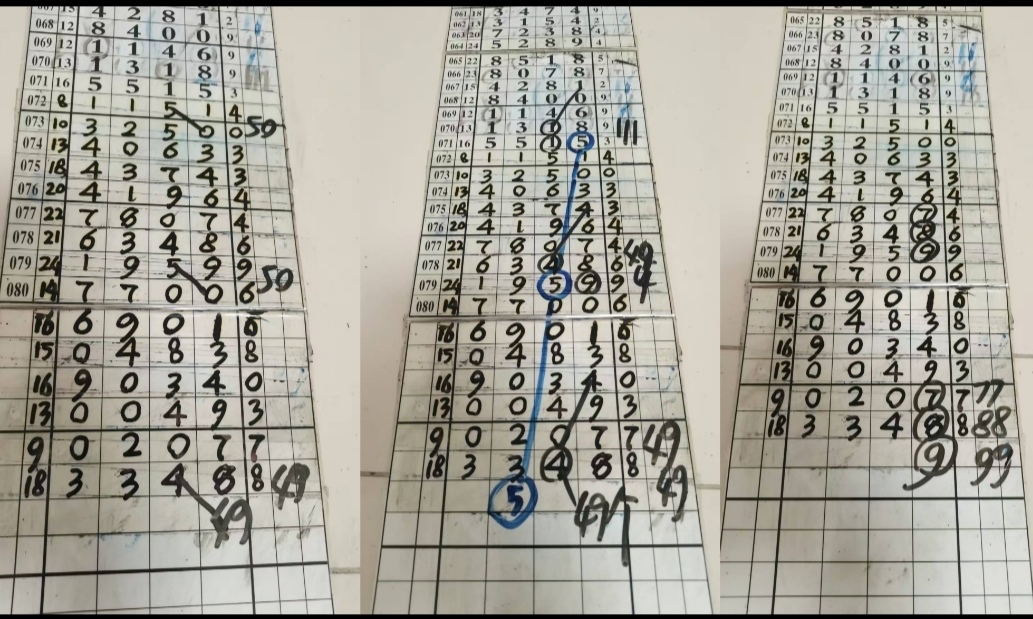 067 15 4 2 8 1 2
068 12 8 4 0 0 9
069 12 1 1 4 6 9
070 13 1 3 1 8 9
071 16 5 5 1 5 3
072 8 1 1 5 1 4
073 10 3 2 5 0 0 50
074 13 4 0 6 3 3
075 18 4 3 7 4 3
076 20 4 1 9 6 4
077 22 7 8 0 7 4
078 21 6 3 4 8 6
079 24 1 9 5 9 9 50
080 14 7 7 0 0 6
16 6 9 0 1 6
15 0 4 8 3 8
16 9 0 3 4 0
13 0 0 4 9 3
9 0 2 0 7 7
18 3 3 4 8 8 49
49
061 18 3 4 7 4 9
062 13 3 1 5 4 2
063 20 7 2 3 8 4
064 24 5 2 8 9 4
065 22 8 5 1 8 5
066 23 8 0 7 8 7
067 15 4 2 8 1 2
068 12 8 4 0 0 9
069 12 1 1 4 6 9
070 13 1 3 1 8 9 111
071 16 5 5 1 5 3
072 8 1 1 5 1 4
073 10 3 2 5 0 0
074 13 4 0 6 3 3
075 18 4 3 7 4 3
076 20 4 1 9 6 4
077 22 7 8 0 7 4 49
078 21 6 3 4 8 6 4
079 24 1 9 5 9 9
080 14 7 7 0 0 6
16 6 9 0 1 6
15 0 4 8 3 8
16 9 0 3 4 0
13 0 0 4 9 3
9 0 2 0 7 7 49
18 3 3 4 8 8 49
5 49
065 22 8 5 1 8 5
066 23 8 0 7 8 7
067 15 4 2 8 1 2
068 12 8 4 0 0 9
069 12 1 1 4 6 9
070 13 1 3 1 8 9
071 16 5 5 1 5 3
072 8 1 1 5 1 4
073 10 3 2 5 0 0
074 13 4 0 6 3 3
075 18 4 3 7 4 3
076 20 4 1 9 6 4
077 22 7 8 0 7 4
078 21 6 3 4 8 6
079 24 1 9 5 9 9
080 14 7 7 0 0 6
16 6 9 0 1 6
15 0 4 8 3 8
16 9 0 3 4 0
13 0 0 4 9 3
9 0 2 0 7 7 77
18 3 3 4 8 8 88
9 99